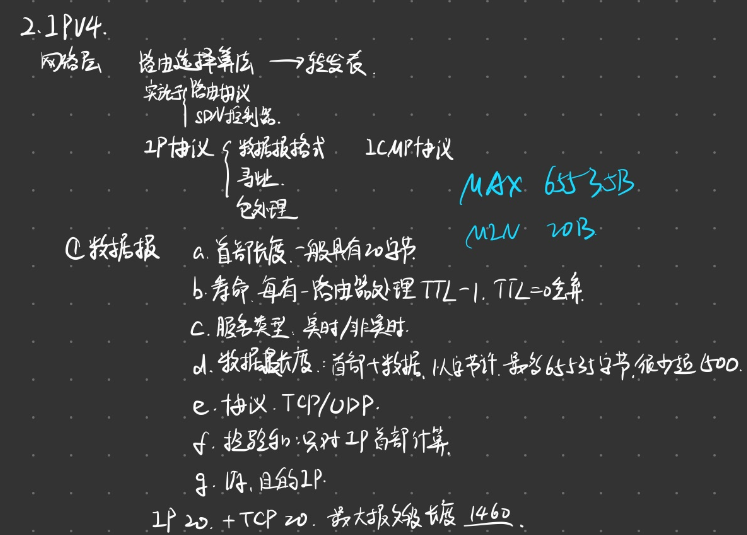 2.IPV4.
网络层 路由选择算法 →转发表.
实现于 路由协议
SDN控制器.
IP协议 数据报格式 ICMP协议
寻址.
包处理
MAX 65535B
MIN 20B
①数据报 a.首部长度.一般具有20字节.
b.寿命.每有一路由器处理TTL-1.TTL=0丢弃.
c.服务类型.实时/非实时.
d.数据报长度:首部+数据,以字节计.最多65535字节,很少超1500.
e.协议.TCP/UDP.
f.检验和:只对IP首部计算.
g.源,目的IP.
IP 20.+TCP 20.最大报文段长度 1460.